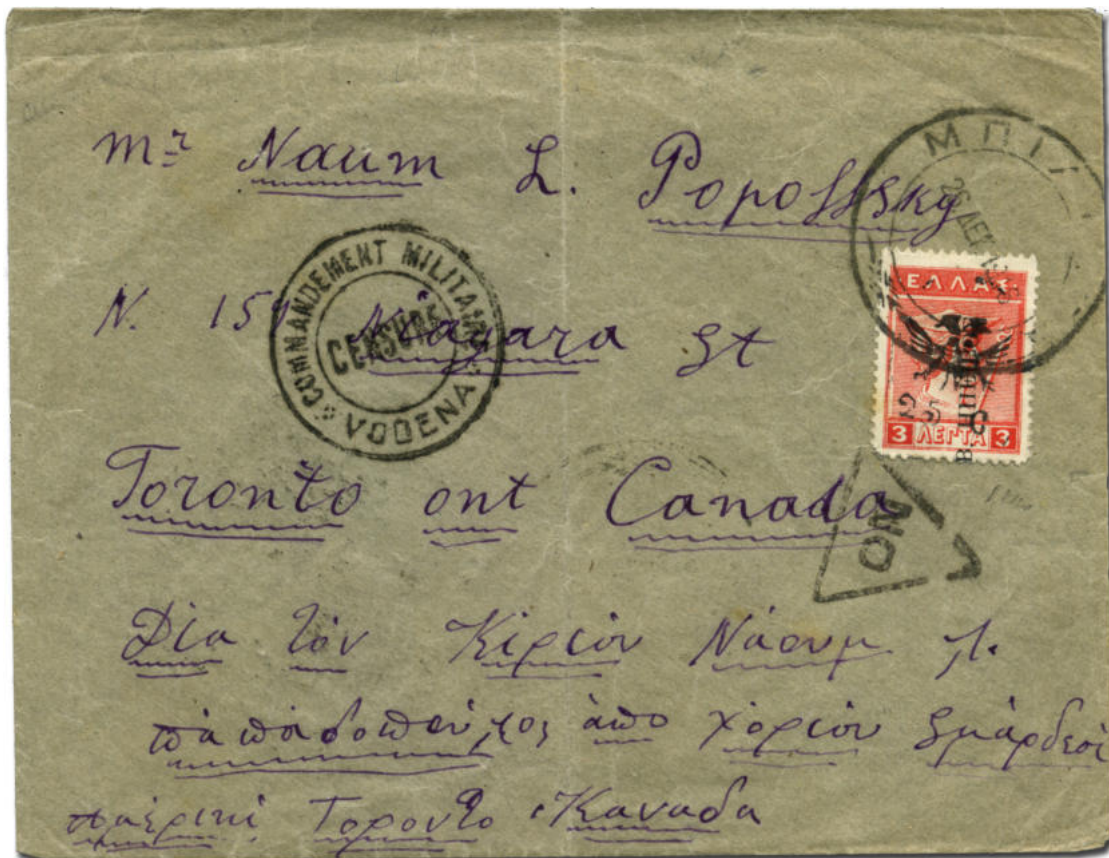 Mr Naum L. Popoffsky
N. 159 Niagara St
Toronto ont Canada
Δια τον Κιριον Νάουμ Λ.
παπαδοπουλος απο χοριον Σμαρδεσι
Τοροντο Καναδα
COMMANDEMENT MILITAIRE
CENSURE
VODENA
ΜΠΙΛ
26 ΔΕΚ
ΕΛΛΑΣ
3 ΛΕΠΤΑ 3
Β. ΗΠΕΙΡΟΣ
25 C
NO